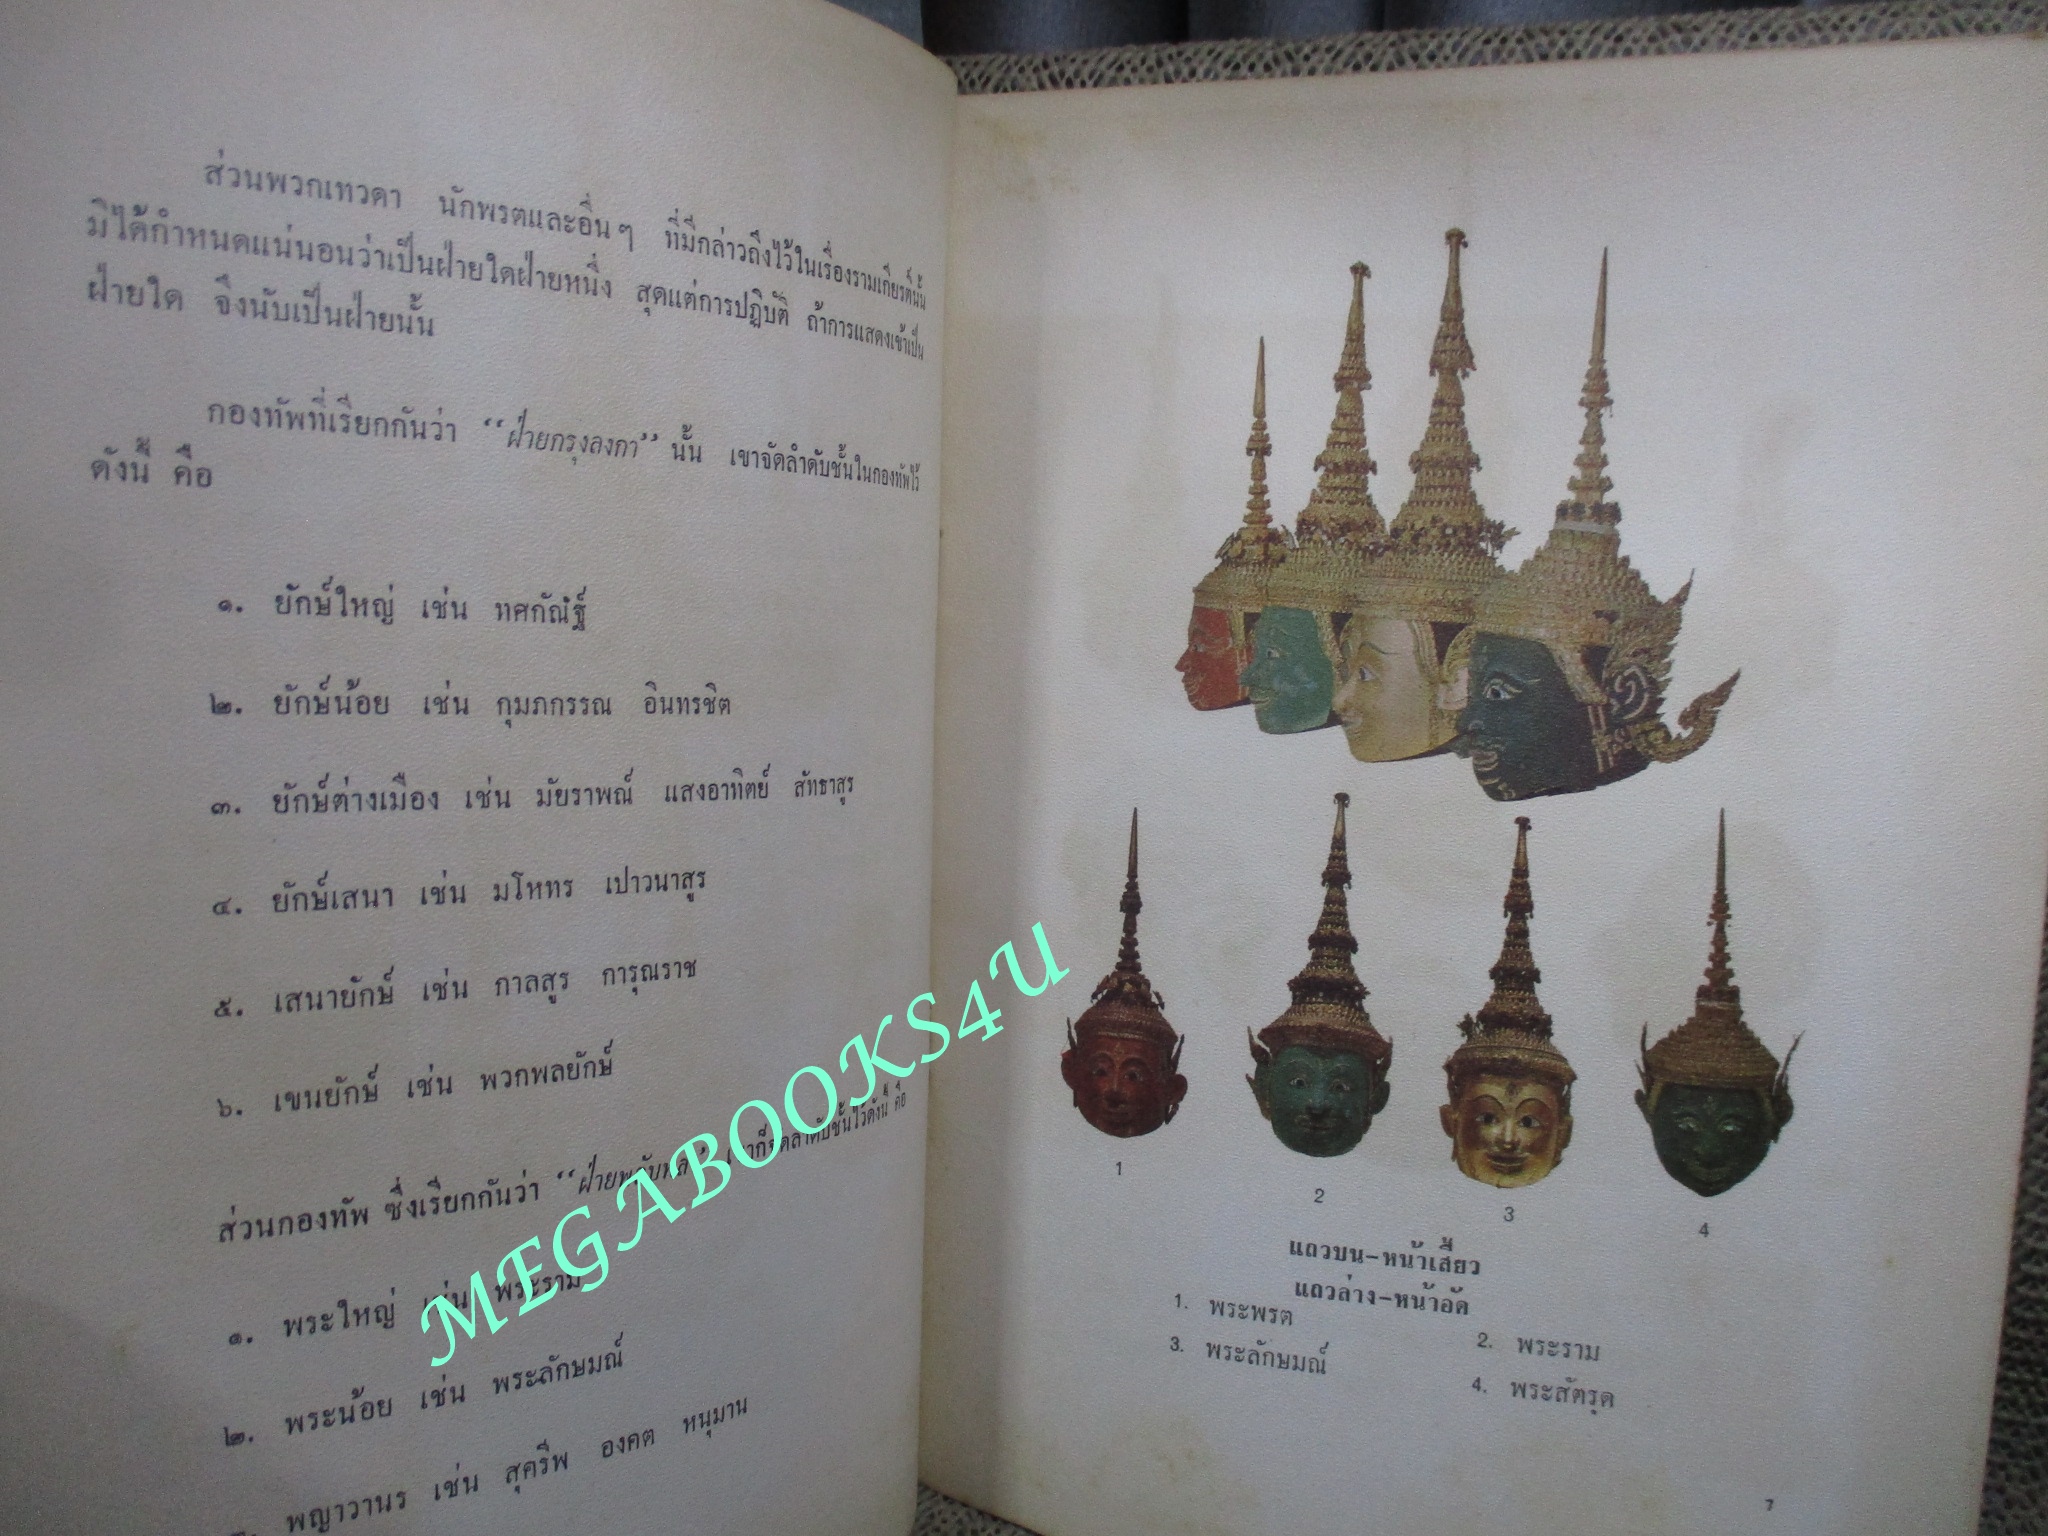 ส่วนพวกเทวดา นักพรตและอื่นๆ ที่มีกล่าวถึงไว้ในเรื่องรามเกียรติ์นั้น
มิได้กำหนดแน่นอนว่าเป็นฝ่ายใดฝ่ายหนึ่ง สุดแต่การปฏิบัติ ถ้าการแสดงเข้าเป็น
ฝ่ายใด จึงนับเป็นฝ่ายนั้น
กองทัพที่เรียกกันว่า “ฝ่ายกรุงลงกา” นั้น เขาจัดลำดับชั้นในกองทัพไว้
ดังนี้ คือ
๑. ยักษ์ใหญ่ เช่น ทศกัณฐ์
๒. ยักษ์น้อย เช่น กุมภกรรณ อินทรชิต
๓. ยักษ์ต่างเมือง เช่น มัยราพณ์ แสงอาทิตย์ สัทธาสูร
๔. ยักษ์เสนา เช่น มโหทร เปาวนาสูร
๕. เสนายักษ์ เช่น กาลสูร การุณราช
๖. เขนยักษ์ เช่น พวกพลยักษ์
ส่วนกองทัพ ซึ่งเรียกกันว่า “ฝ่ายพลับพลา” เขาก็จัดลำดับชั้นไว้ดังนี้ คือ
๑. พระใหญ่ เช่น พระราม
๒. พระน้อย เช่น พระลักษมณ์
พญาวานร เช่น สุครีพ องคต หนุมาน
MEGABOOKS4U
1
2
3
4
แถวบน-หน้าเสี้ยว
แถวล่าง-หน้าอัด
1. พระพรต
2. พระราม
3. พระลักษมณ์
4. พระสัตรุด
7